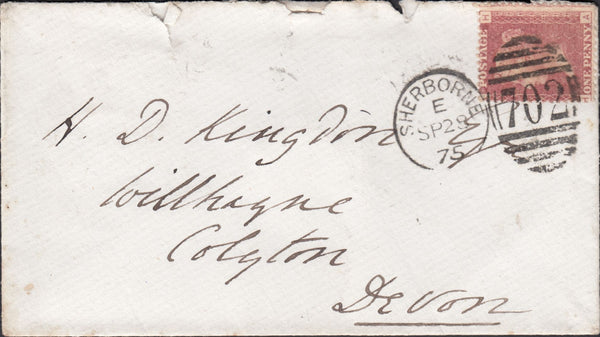 H A
POSTAGE
ONE PENNY
SHERBORNE
E
SP 28
75
702
H. D. Kingdon
Willhayne
Colyton
Devon